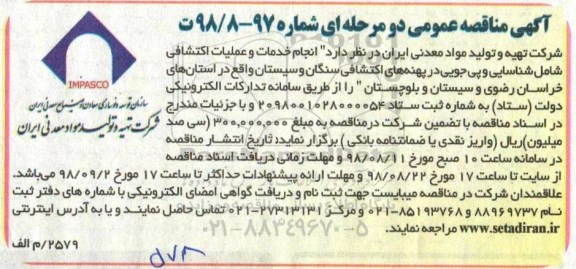 آگهی مناقصه عمومی دو مرحله ای شماره ۹۷-۹۸/۸ ت
شرکت تهیه و تولید مواد معدنی ایران در نظر دارد" انجام خدمات و عملیات اکتشافی
شامل شناسایی و پی جویی در پهنه‌های اکتشافی سنگان و سیستان واقع در استان‌های
خراسان رضوی و سیستان و بلوچستان " را از طریق سامانه تدارکات الکترونیکی
دولت (ستاد) به شماره ثبت ستاد ۲۰۹۸۰۰۱۰۲۸۰۰۰۰۵۴ و با جزئیات مندرج
در اسناد مناقصه با تضمین شرکت در مناقصه به مبلغ ۳۰۰,۰۰۰,۰۰۰ (سی صد
میلیون) ریال (واریز نقدی یا ضمانتنامه بانکی ) برگزار نماید: تاریخ انتشار مناقصه
در سامانه ساعت ۱۰ صبح مورخ ۹۸/۰۸/۱۱ و مهلت زمانی دریافت اسناد مناقصه
از سایت تا ساعت ۱۷ مورخ ۹۸/۰۸/۲۲ و مهلت ارایه پیشنهادات حداکثر تا ساعت ۱۷ مورخ ۹۸/۰۹/۲ می‌باشد.
علاقمندان شرکت در مناقصه میبایست جهت ثبت نام و دریافت گواهی امضای الکترونیکی با شماره های دفتر ثبت
نام ۸۸۹۶۹۷۳۷ و ۸۵۱۹۳۷۶۸-۰۲۱ و مرکز ۲۷۳۱۳۱۳۱-۰۲۱ تماس حاصل نمایند و یا به آدرس اینترنتی
www.setadiran.ir مراجعه نمایند.
۲۵۷۹/م الف
IMPASCO
سازمان توسعه و نوسازی معادن و صنایع معدنی ایران
شرکت تهیه و تولید مواد معدنی ایران
۰۲۱-۸۸۳۴۹۶۷۰-۵